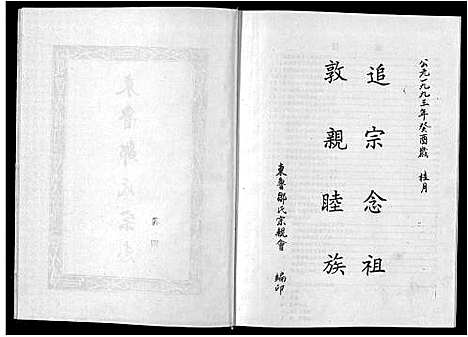 公元一九九三年癸酉歲 桂月
追宗念祖
敦親睦族
東魯鄒氏宗親會 編印
東魯鄒氏宗